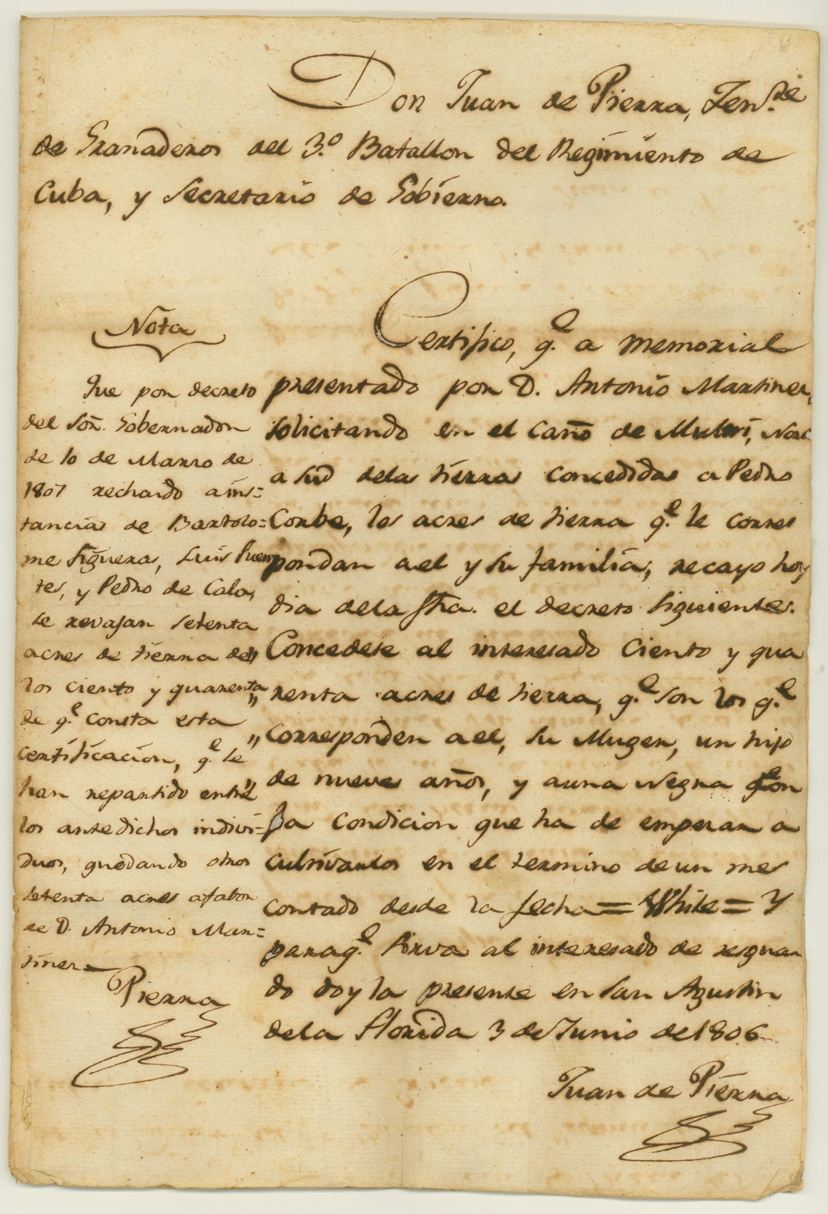 Don Juan de Pierra, Ten.te
de Granaderos del 3.º Batallon del Regimiento de
Cuba, y Secretario de Gobierno.
Certifico, q.e a memorial
presentado por D. Antonio Martinez,
solicitando en el caño de Mulxri, Nort
a sud delas tierras concedidas a Pedro
Corbe, los acres de tierra q.e le corres
pondan ael y su familia, recayo hoy
dia dela fha. el decreto siguiente.
Concedese al interesado ciento y qua
renta acres de tierra, q.e son los q.e
corresponden ael, su Muger, un hijo
de nueve años, y auna Negra con
la condicion que ha de empezar a
cultivarlos en el termino de un mes
contado desde la fecha = White = Y
paraq.e sirva al interesado de resguar
do doy la presente en San Agustin
dela Florida 3 de Junio de 1806
Juan de Pierra
Nota
Que por decreto
del Sor. Gobernador
de 10 de Marzo de
1807 rechardo a ins-
tancias de Bartolo-
me Siguera, Luis Fuen
tes, y Pedro de Cala,
se revajan setenta
acres de tierra de
los ciento y quarenta
de q.e consta esta
certificacion, q.e se
han repartido entre
los antedichos indivi-
duos, quedando otros
setenta acres afabor
de D. Antonio Mar-
tinez
Pierra